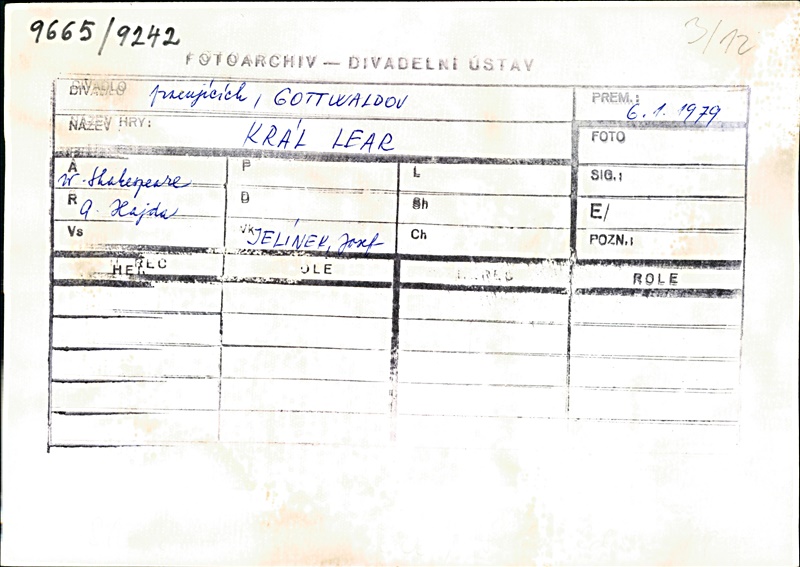 9665/9242
3/12
FOTOARCHIV — DIVADELNÍ ÚSTAV
DIVADLO pracujících, GOTTWALDOV
PREM.: 6. 1. 1979
NÁZEV HRY: KRÁL LEAR
FOTO
A W. Shakespeare
P
L
SIG.:
R A. Hajda
D
Sh
E/
Vs
VK JELÍNEK, Josef
Ch
POZN.:
HEREC ROLE HEREC ROLE